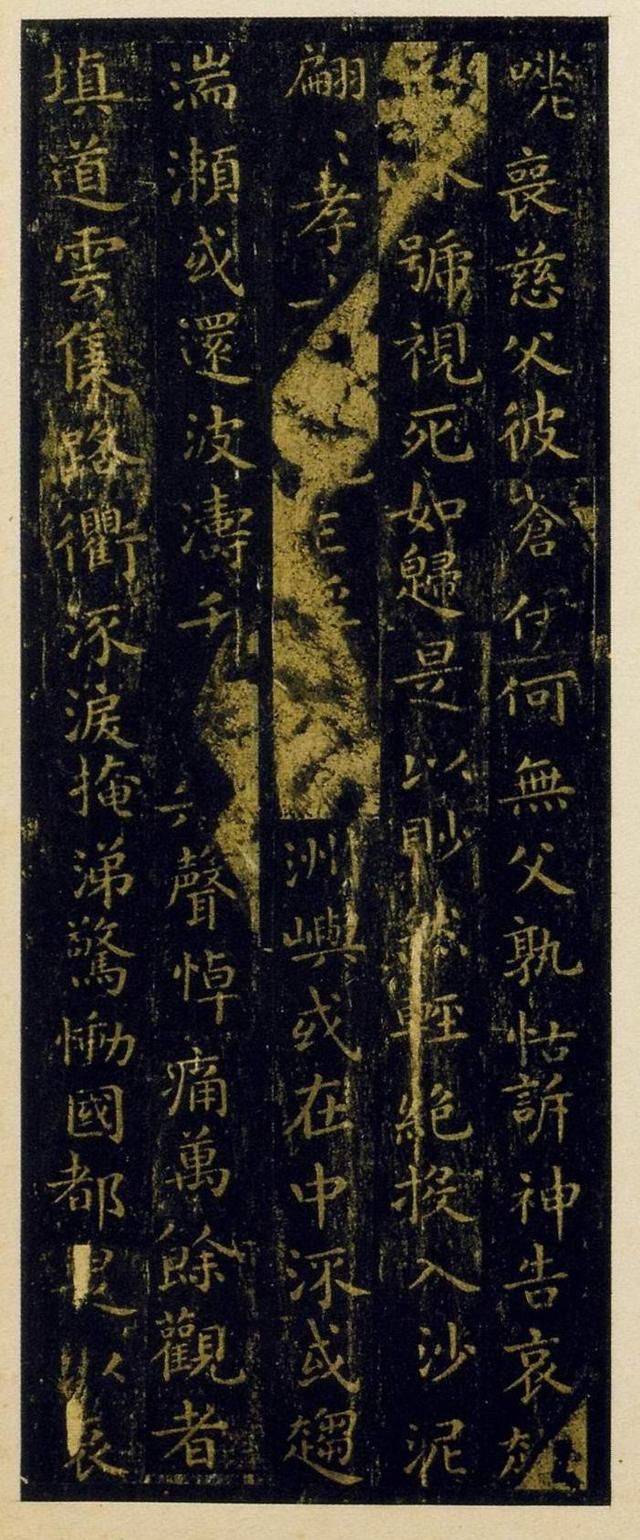 咷喪慈父彼蒼伊何無父孰怙訴神告哀赴
號視死如歸是以眇然輕絕投入沙泥
翩〻孝洲嶼或在中流或趨
湍瀨或還波濤千聲悼痛萬餘觀者
填道雲集路衢流淚掩涕驚慟國都是以哀